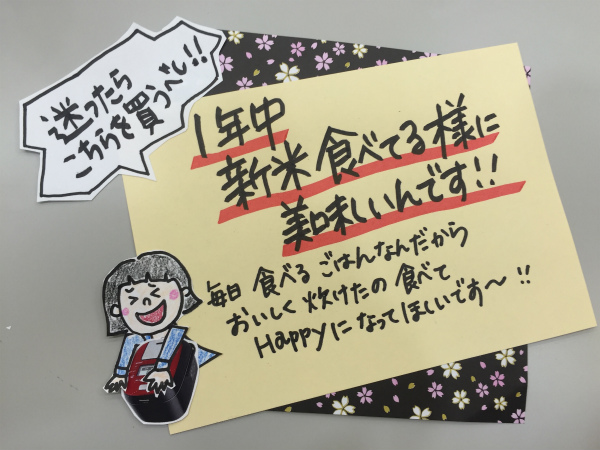 迷ったら
こちらを買うべし!!
1年中
新米食べてる様に
美味しいんです!!
毎日食べるごはんなんだから
おいしく炊けたの食べて
Happyになってほしいです〜!!